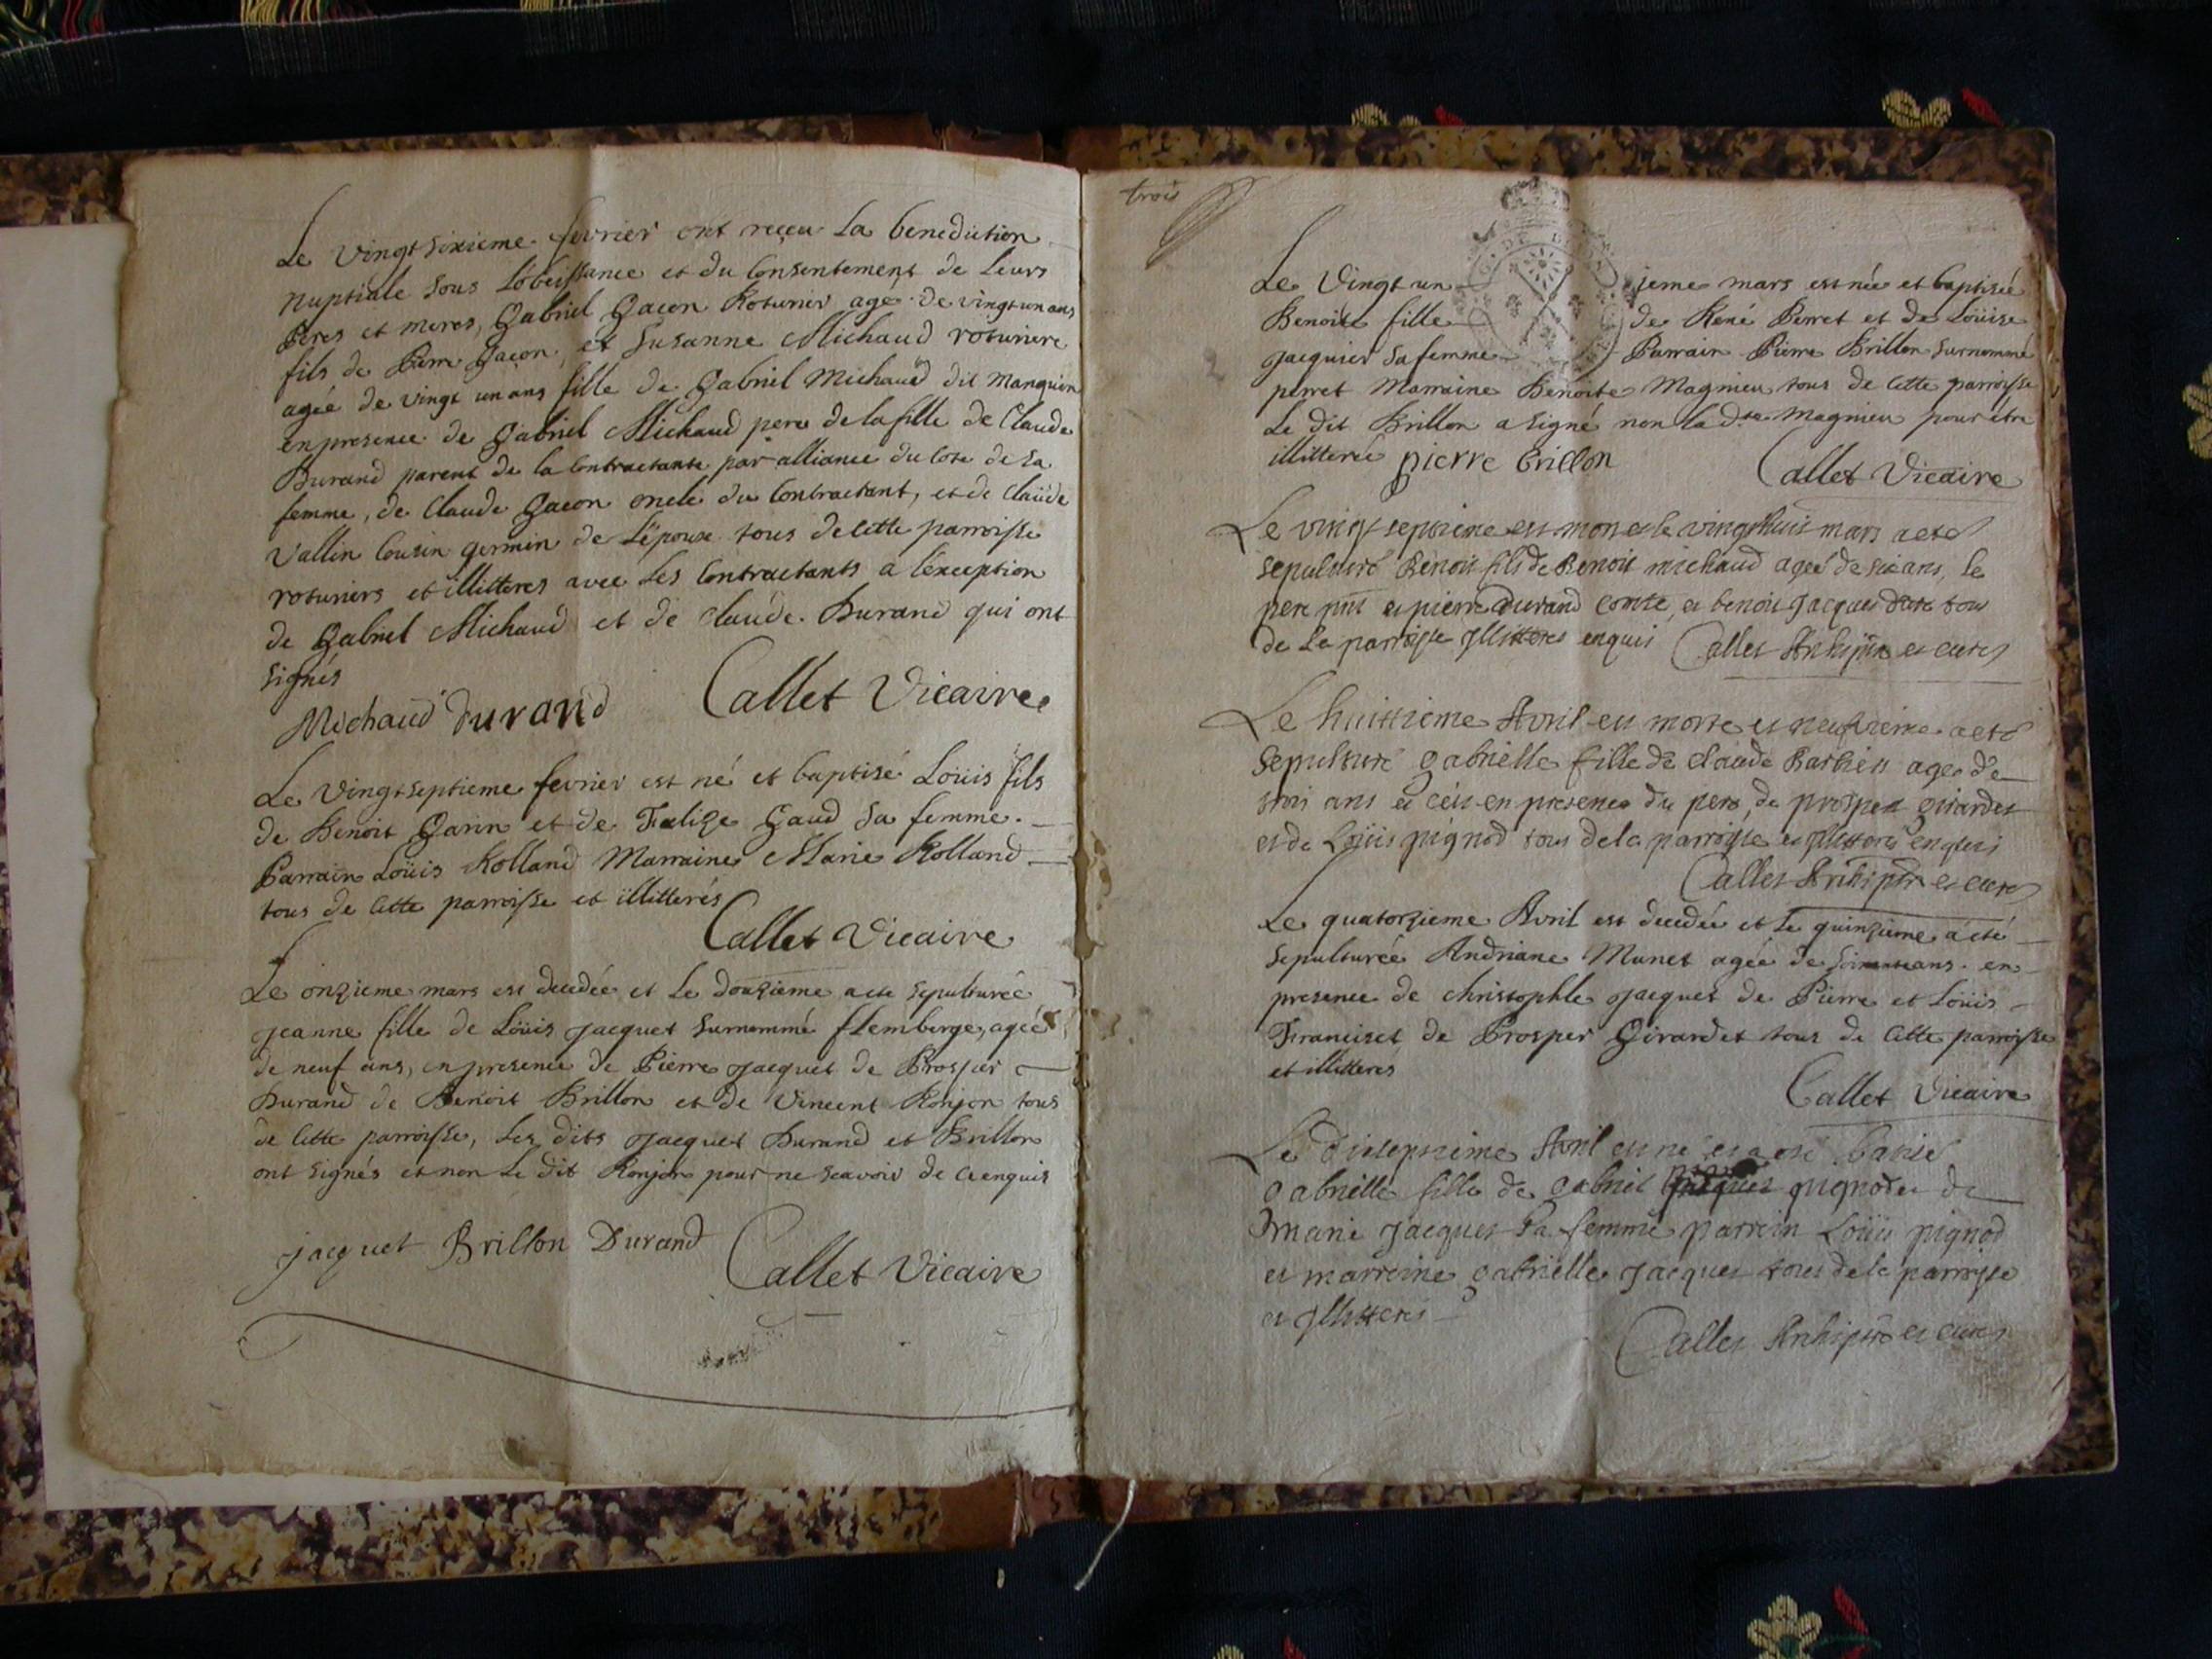 Le vingt sixieme fevrier ont reçeu la benediction
nuptiale sous l'obeissance et du consentement de leurs
peres et meres, Gabriel Gacon Roturier agé de vingt un ans
fils de Pierre Gacon, et Susanne Michaud roturiere
agée de vingt un ans fille de Gabriel Michaud dit Manquin
en presence de Gabriel Michaud pere de la fille de Claude
Durand parent de la contractante par alliance du coté de sa
femme, de Claude Gacon oncle du contractant, et de Claude
Vallin cousin germin de l'épouse tous de cette parroisse
roturiers et illitteres avec les contractants a l'exception
de Gabriel Michaud et de Claude Durand qui ont
signés
Michaud durand Callet Vicaire
Le vingt septieme fevrier est né et baptisé Loüis fils
de Benoit Garin et de Gaud sa femme.
Parrain Loüis Rolland Marraine Marie Rolland
tous de cette parroisse et illitterés
Callet Vicaire
Le onzieme mars est decedée et le douzieme a eté sepulturée
jeanne fille de Loüis jacquet surnommé flemberge, agée
de neuf ans, en presence de Pierre jacquet de Prosper
Durand de Benoit Brillon et de Vincent Ronjon tous
de cette parroisse, les dits jacquet Durand et Brillon
ont signés et non le dit Ronjon pour ne scavoir de ce enquis
jacquet Brillon Durand Callet Vicaire
trois
Le Vingt un ieme mars est née et baptisée
Benoite fille de René Perret et de Loüise
jacquier sa femme Parrain Pierre Brillon surnommé
perret Marraine Benoite Magnieu tous de cette parroisse
Le dit Brillon a signé non la dte Magnieu pour être
illitterée pierre brillon Callet Vicaire
Le vingt septieme est mort et le vingthuit mars a eté
sepulturé Benoit fils de Benoit michaud agé de six ans, le
pere pnt et pierre durand et benoit jacquet tous
de la parroisse illitteres enquis Callet Archiptre et curé
Le huittieme Avril est morte et neufvieme a eté
sepulturé gabrielle fille de claude Barbier agée de
trois ans et ce en presence du pere, de prosper girardet
et de Loüis pignod tous de la parroisse et illitteres enquis
Callet Archiptre et curé
Le quatorzieme Avril est decedée et le quinzieme a eté
sepulturée Andriane Munet agée de ans. en
presence de christophle jacquet de Pierre et Loüis
Franciset de Prosper Girardet tous de cette parroisse
et illitterés
Callet Vicaire
Le dixseptieme Avril est né et a eté batisé
gabrielle fille de gabriel pignod et de
marie jacquet sa femme parrein Loüis pignod
et marreine gabrielle jacquet tous de la parroisse
et illitterés
Callet Archiptre et curé